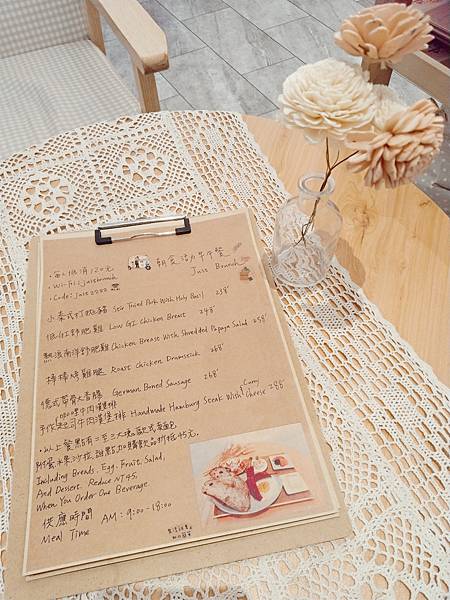 朝食活力早午餐
Juss Brunch
•每人低消120元
•Wi-Fi: jussbrunch
•Code: juss2222
小泰式打拋豬 Stir Fried Pork With Holy Basil 238
低GI舒肥雞 Low GI Chicken Breast 248
南洋舒肥雞 Chicken Breast With Shredded Papaya Salad 258
棒棒烤雞腿 Roast Chicken Drumstick 268
德式帶骨大香腸 German Boned Sausage 268
手作起司牛肉漢堡排 Handmade Hamburg Steak With Curry Cheese 288
•以上餐點有三至三大塊歐式麵包
所有水果沙拉,甜點加購飲品折抵45元,
Including Breads, Egg, Fruit, Salad,
And Dessert. Reduce NT45,
When You Order One Beverage.
供應時間 AM:9:00-18:00
Meal Time